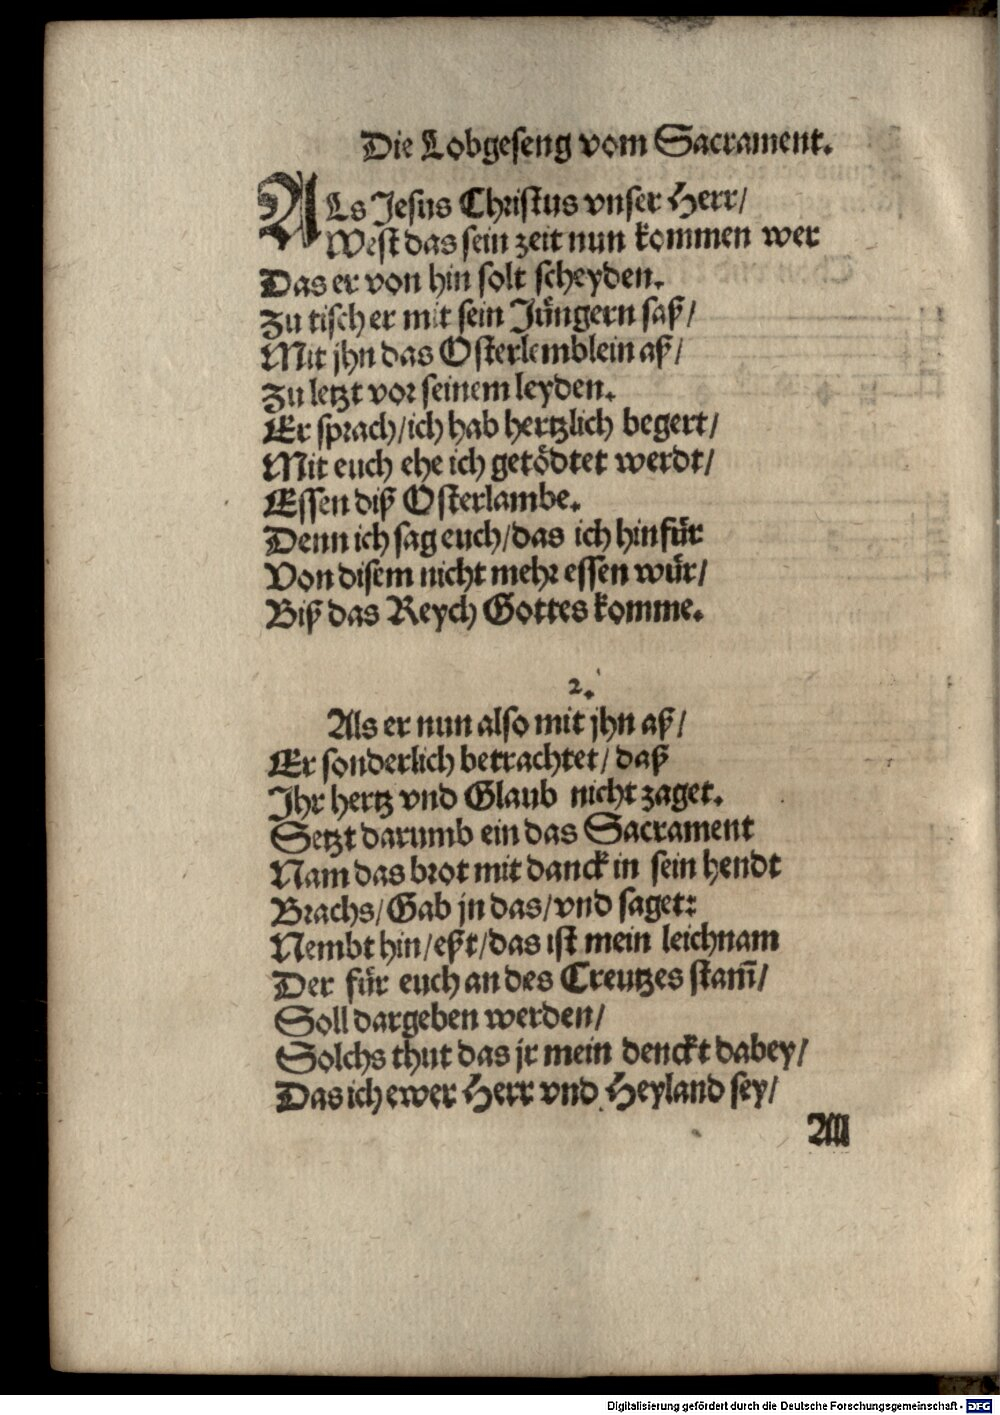 Die Lobgeseng vom Sacrament.
ALs Jesus Christus vnser Herr/
West das sein zeit nun kommen wer
Das er von hin solt scheyden.
Zu tisch er mit sein Jüngern saß/
Mit jhn das Osterlemblein aß/
Zu letzt vor seinem leyden.
Er sprach/ich hab hertzlich begert/
Mit euch ehe ich getödtet werdt/
Essen diß Osterlambe.
Denn ich sag euch/das ich hinfür
Von disem nicht mehr essen wür/
Biß das Reych Gottes komme.
2.
Als er nun also mit jhn aß/
Er sonderlich betrachtet/ daß
Ihr hertz vnd Glaub nicht zaget.
Setzt darumb ein das Sacrament
Nam das brot mit danck in sein hendt
Brachs/Gab jn das/vnd saget:
Nembt hin/eßt/das ist mein leichnam
Der für euch an des Creutzes stam̄/
Soll dargeben werden/
Solchs thut das jr mein denckt dabey/
Das ich ewer Herr vnd Heyland sey/
All
Digitalisierung gefördert durch die Deutsche Forschungsgemeinschaft - DFG